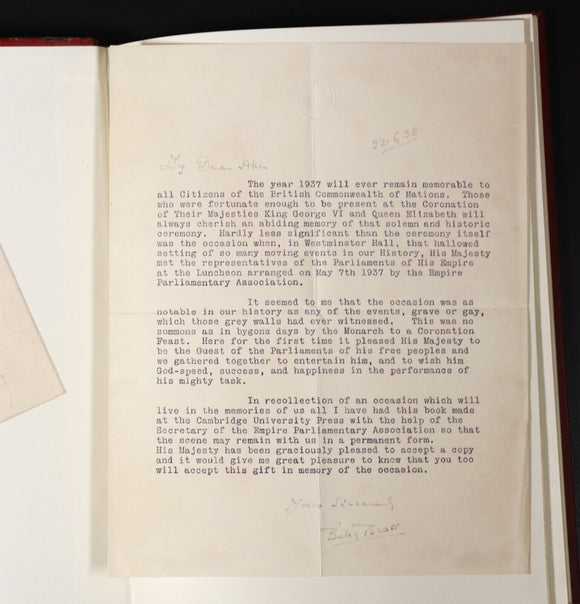 22.6.38
My Dear
The year 1937 will ever remain memorable to
all Citizens of the British Commonwealth of Nations. Those
who were fortunate enough to be present at the Coronation
of Their Majesties King George VI and Queen Elizabeth will
always cherish an abiding memory of that solemn and historic
ceremony. Hardly less significant than the ceremony itself
was the occasion when, in Westminster Hall, that hallowed
setting of so many moving events in our History, His Majesty
met the representatives of the Parliaments of His Empire
at the Luncheon arranged on May 7th 1937 by the Empire
Parliamentary Association.
It seemed to me that the occasion was as
notable in our history as any of the events, grave or gay,
which those grey walls had ever witnessed. This was no
summons as in bygone days by the Monarch to a Coronation
Feast. Here for the first time it pleased His Majesty to
be the Guest of the Parliaments of his free peoples and
we gathered together to entertain him, and to wish him
God-speed, success, and happiness in the performance of
his mighty task.
In recollection of an occasion which will
live in the memories of us all I have had this book made
at the Cambridge University Press with the help of the
Secretary of the Empire Parliamentary Association so that
the scene may remain with us in a permanent form.
His Majesty has been graciously pleased to accept a copy
and it would give me great pleasure to know that you too
will accept this gift in memory of the occasion.
Yours Sincerely